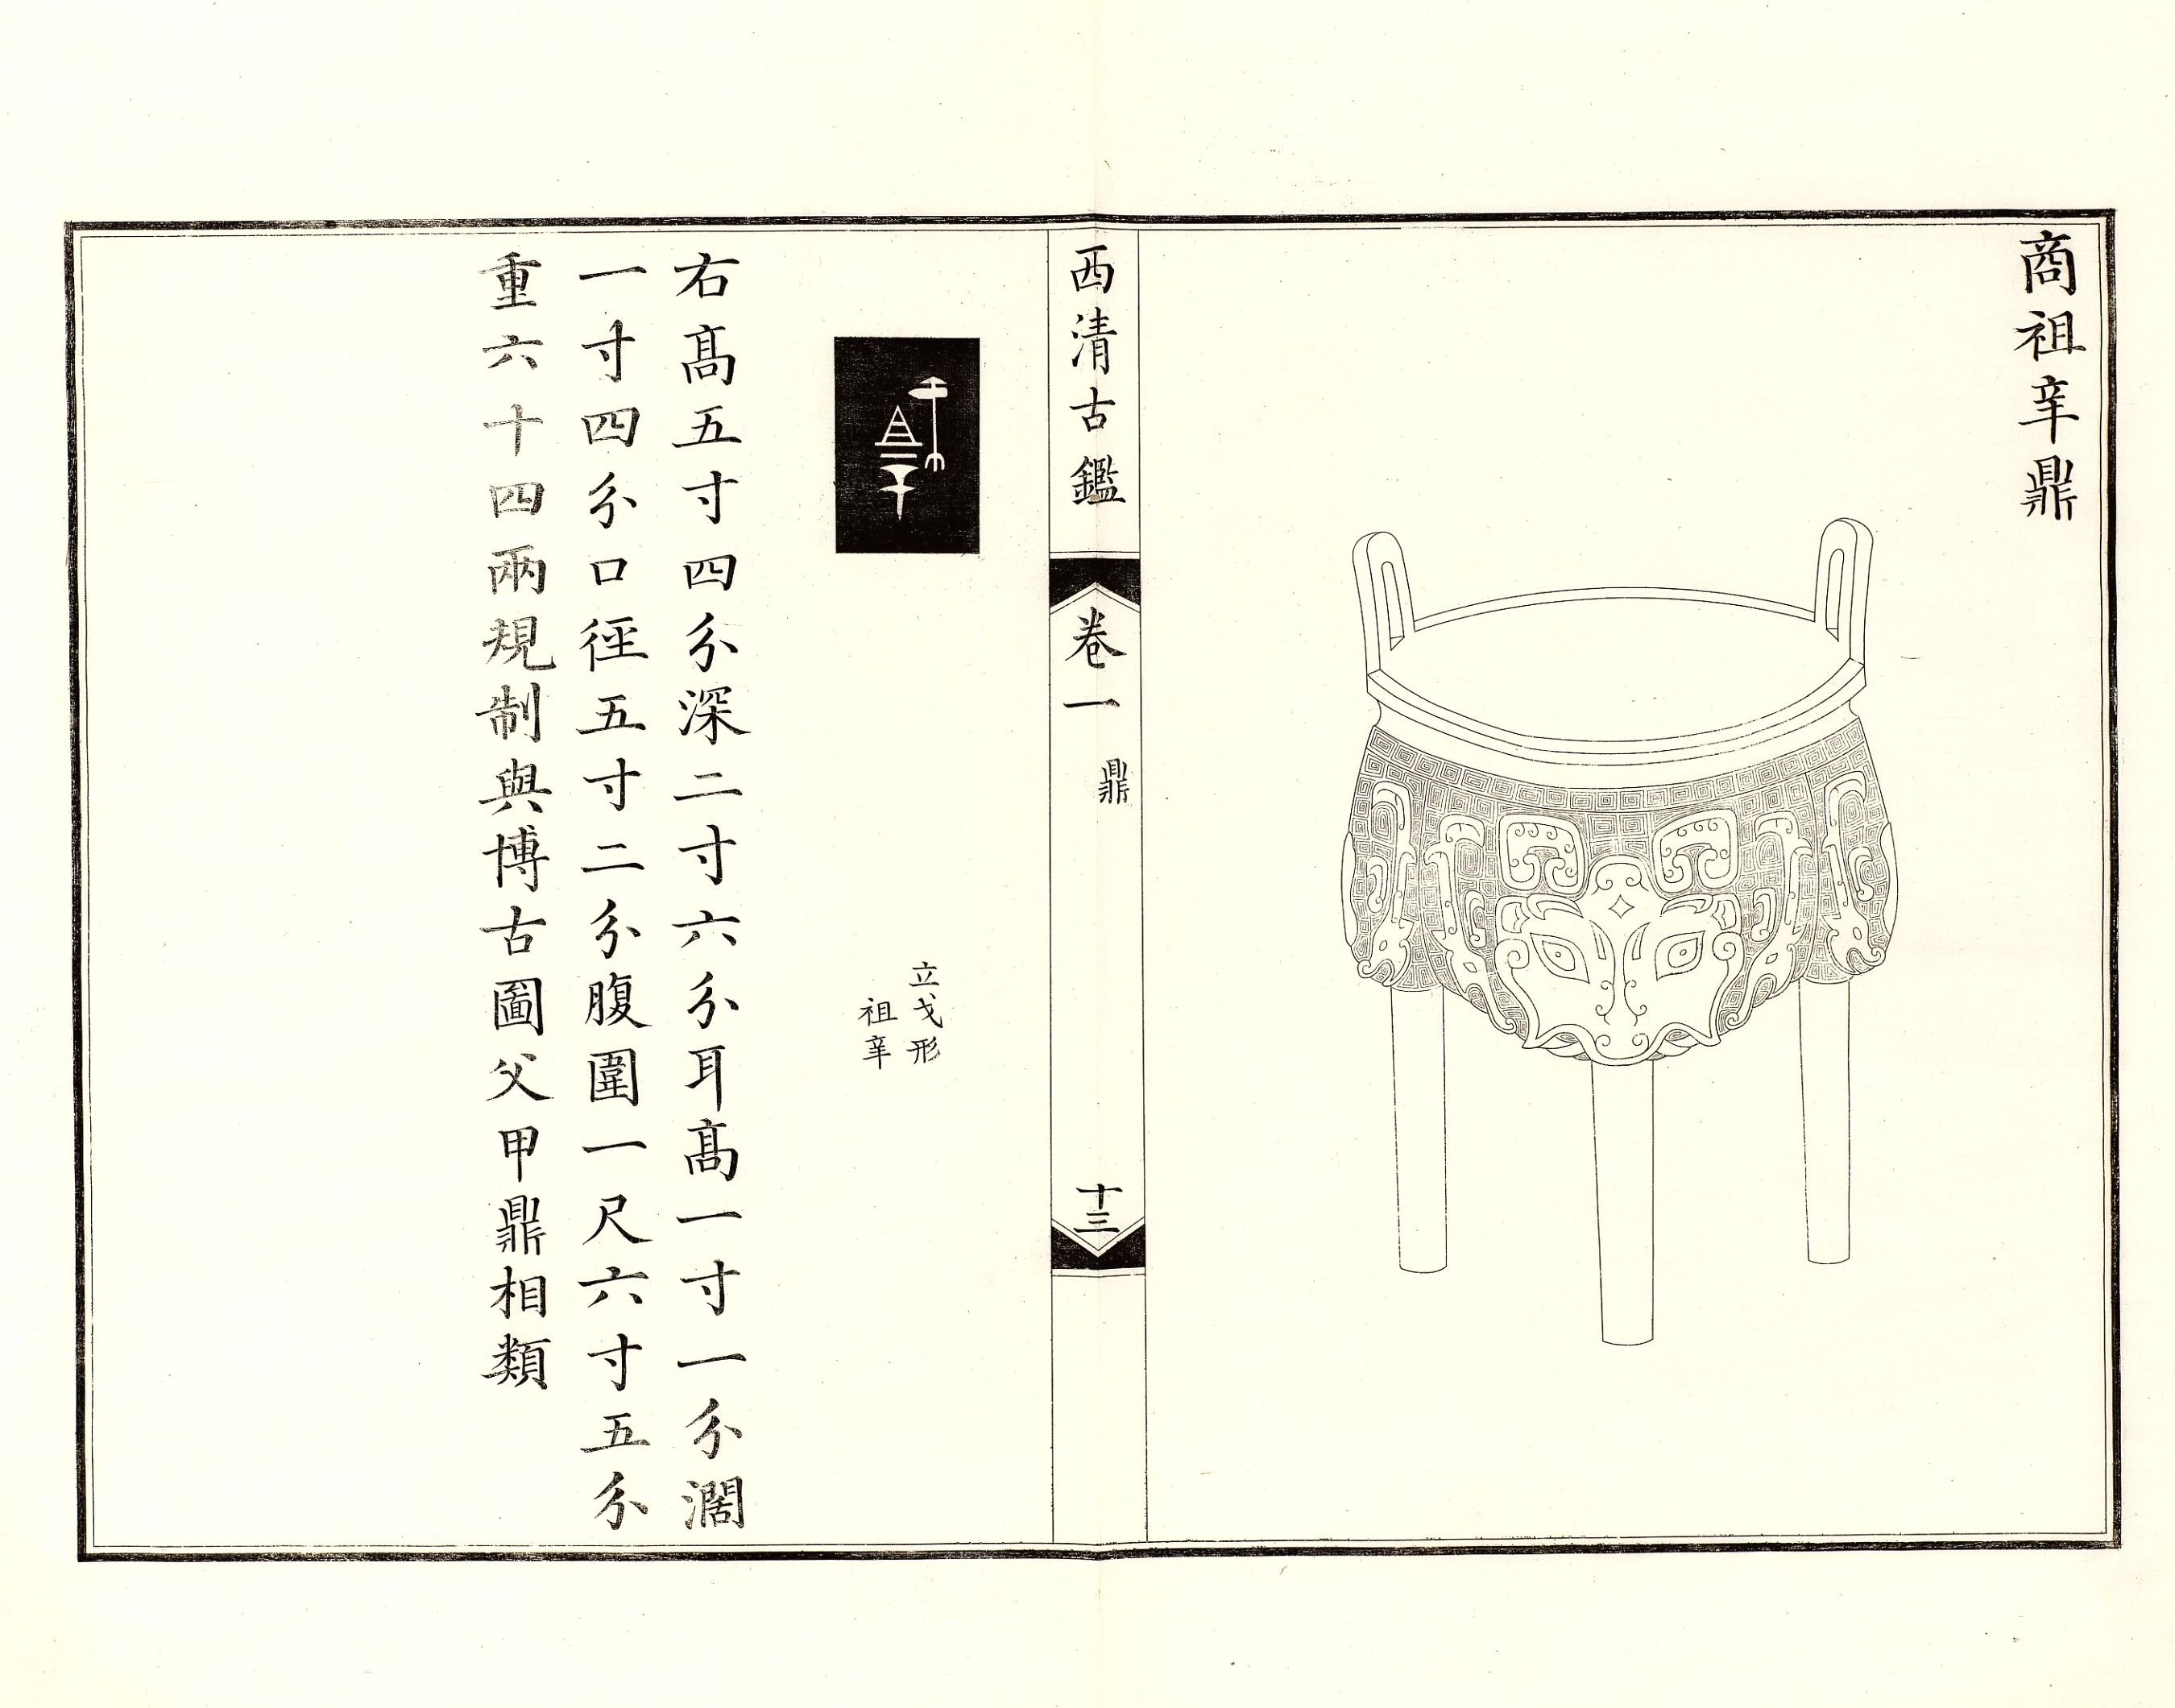 商祖辛鼎
西清古鑑
卷一
鼎
十三
立戈形
祖辛
右高五寸四分深二寸六分耳高一寸一分濶
一寸四分口徑五寸二分腹圍一尺六寸五分
重六十四兩規制與博古圖父甲鼎相類